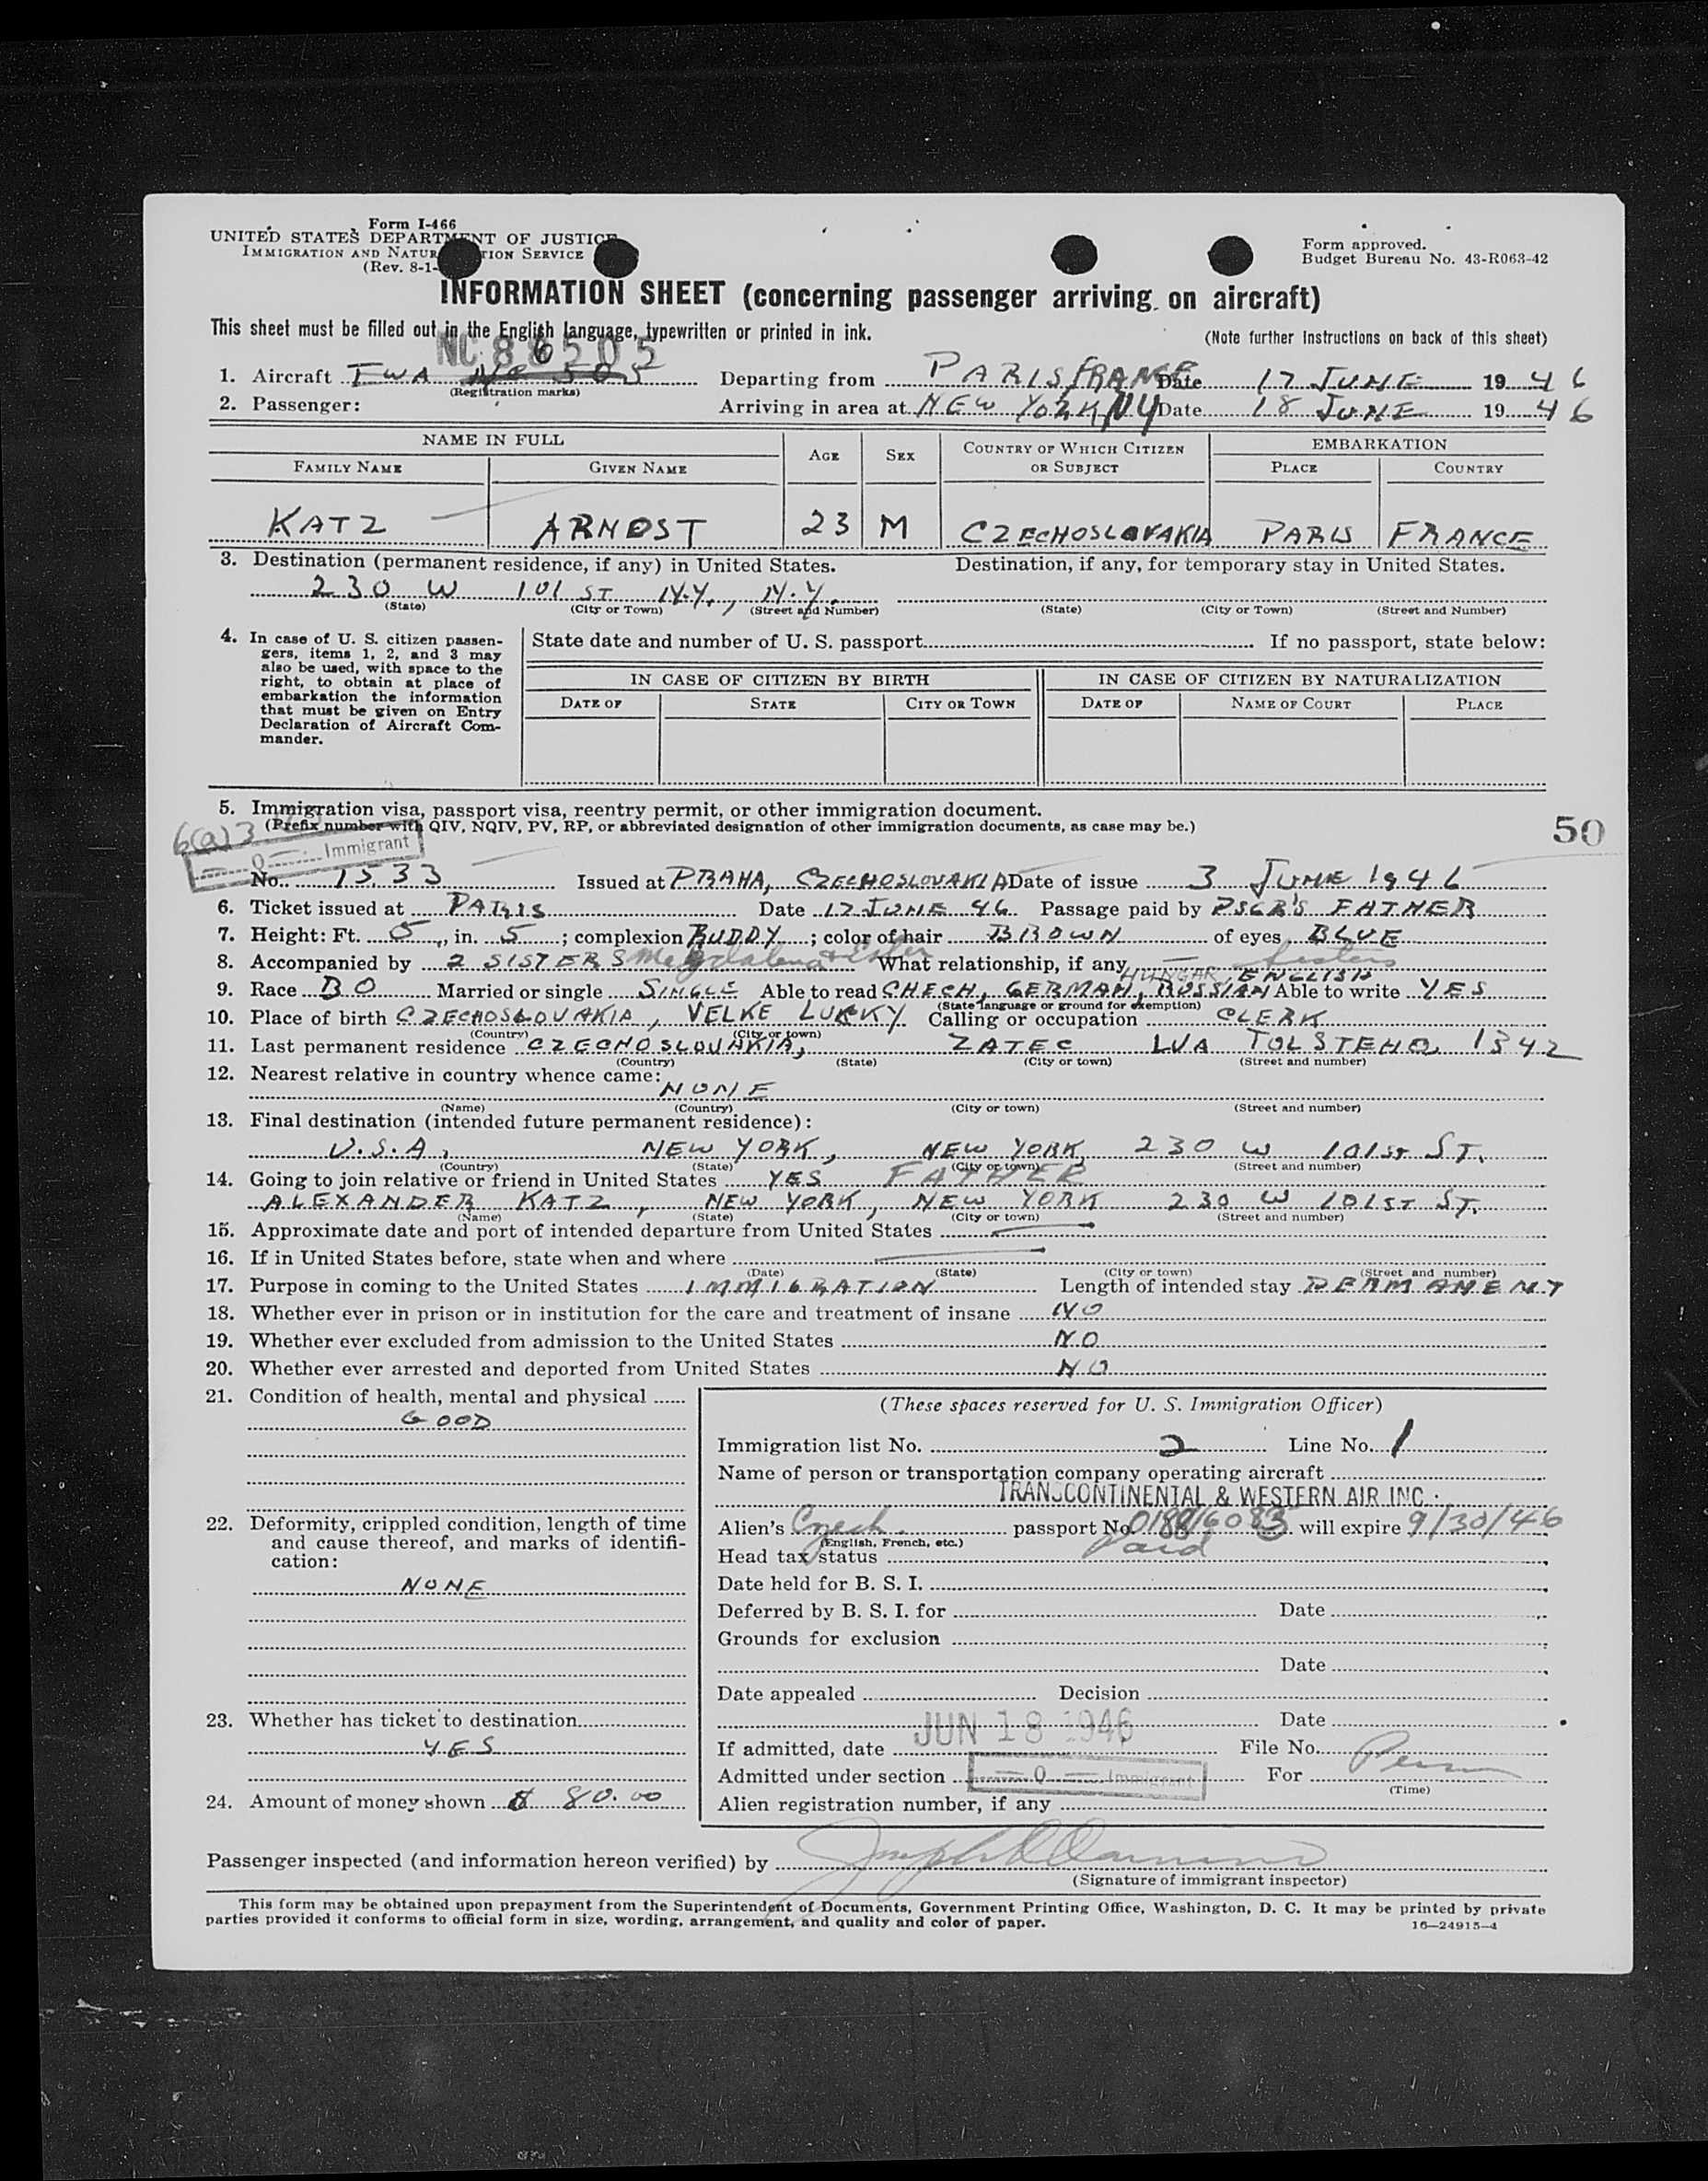 Form I-466
UNITED STATES DEPARTMENT OF JUSTICE
IMMIGRATION AND NATURALIZATION SERVICE
(Rev. 8-1-
Form approved.
Budget Bureau No. 43-R063-42
INFORMATION SHEET (concerning passenger arriving on aircraft)
This sheet must be filled out in the English language, typewritten or printed in ink.
(Note further instructions on back of this sheet)
NC 86505
1. Aircraft TWA NC 505 Departing from PARIS, FRANCE Date 17 JUNE 1946
(Registration marks)
2. Passenger: Arriving in area at NEW YORK NY Date 18 JUNE 1946
NAME IN FULL AGE SEX COUNTRY OF WHICH CITIZEN OR SUBJECT EMBARKATION
FAMILY NAME GIVEN NAME PLACE COUNTRY
KATZ ARNOST 23 M CZECHOSLOVAKIA PARIS FRANCE
3. Destination (permanent residence, if any) in United States. Destination, if any, for temporary stay in United States.
230 W 101 ST N.Y., N.Y.
(State) (City or Town) (Street and Number) (State) (City or Town) (Street and Number)
4. In case of U. S. citizen passengers, items 1, 2, and 3 may also be used, with space to the right, to obtain at place of embarkation the information that must be given on Entry Declaration of Aircraft Commander.
State date and number of U. S. passport If no passport, state below:
IN CASE OF CITIZEN BY BIRTH IN CASE OF CITIZEN BY NATURALIZATION
DATE OF STATE CITY OR TOWN DATE OF NAME OF COURT PLACE
5. Immigration visa, passport visa, reentry permit, or other immigration document.
(Prefix number with QIV, NQIV, PV, RP, or abbreviated designation of other immigration documents, as case may be.)
50
6(a)3
— Q — Immigrant
No. 1533 Issued at PRAHA, CZECHOSLOVAKIA Date of issue 3 JUNE 1946
6. Ticket issued at PARIS Date 17 JUNE 46 Passage paid by PSGR'S FATHER
7. Height: Ft. 5, in. 5; complexion RUDDY; color of hair BROWN of eyes BLUE
8. Accompanied by 2 SISTERS Magdalena + Ester What relationship, if any — Sisters
HUNGAR, ENGLISH
9. Race BO Married or single SINGLE Able to read CHECH, GERMAN, RUSSIAN Able to write YES
(State language or ground for exemption)
10. Place of birth CZECHOSLOVAKIA, VELKE LUCKY Calling or occupation CLERK
(Country) (City or town)
11. Last permanent residence CZECHOSLOVAKIA, ZATEC LVA TOLSTEHO, 1342
(Country) (State) (City or town) (Street and number)
12. Nearest relative in country whence came:
NONE
(Name) (Country) (City or town) (Street and number)
13. Final destination (intended future permanent residence):
U.S.A, NEW YORK, NEW YORK, 230 W 101ST ST.
(Country) (State) (City or town) (Street and number)
14. Going to join relative or friend in United States YES FATHER
ALEXANDER KATZ, NEW YORK, NEW YORK 230 W 101ST ST.
(Name) (State) (City or town) (Street and number)
15. Approximate date and port of intended departure from United States —
16. If in United States before, state when and where —
(Date) (State) (City or town) (Street and number)
17. Purpose in coming to the United States IMMIGRATION Length of intended stay PERMANENT
18. Whether ever in prison or in institution for the care and treatment of insane NO
19. Whether ever excluded from admission to the United States NO
20. Whether ever arrested and deported from United States NO
21. Condition of health, mental and physical
GOOD
22. Deformity, crippled condition, length of time and cause thereof, and marks of identification:
NONE
23. Whether has ticket to destination
YES
24. Amount of money shown $ 80.00
(These spaces reserved for U. S. Immigration Officer)
Immigration list No. 2 Line No. 1
Name of person or transportation company operating aircraft
TRANSCONTINENTAL & WESTERN AIR INC.
Alien's Czech. passport No. will expire 9/30/46
(English, French, etc.)
Head tax status Paid
Date held for B. S. I.
Deferred by B. S. I. for Date
Grounds for exclusion
Date
Date appealed Decision
Date
If admitted, date JUN 18 1946 File No.
Admitted under section — Q — Immigrant For Perm
(Time)
Alien registration number, if any
Passenger inspected (and information hereon verified) by
(Signature of immigrant inspector)
This form may be obtained upon prepayment from the Superintendent of Documents, Government Printing Office, Washington, D. C. It may be printed by private
parties provided it conforms to official form in size, wording, arrangement, and quality and color of paper.
16—24915-4